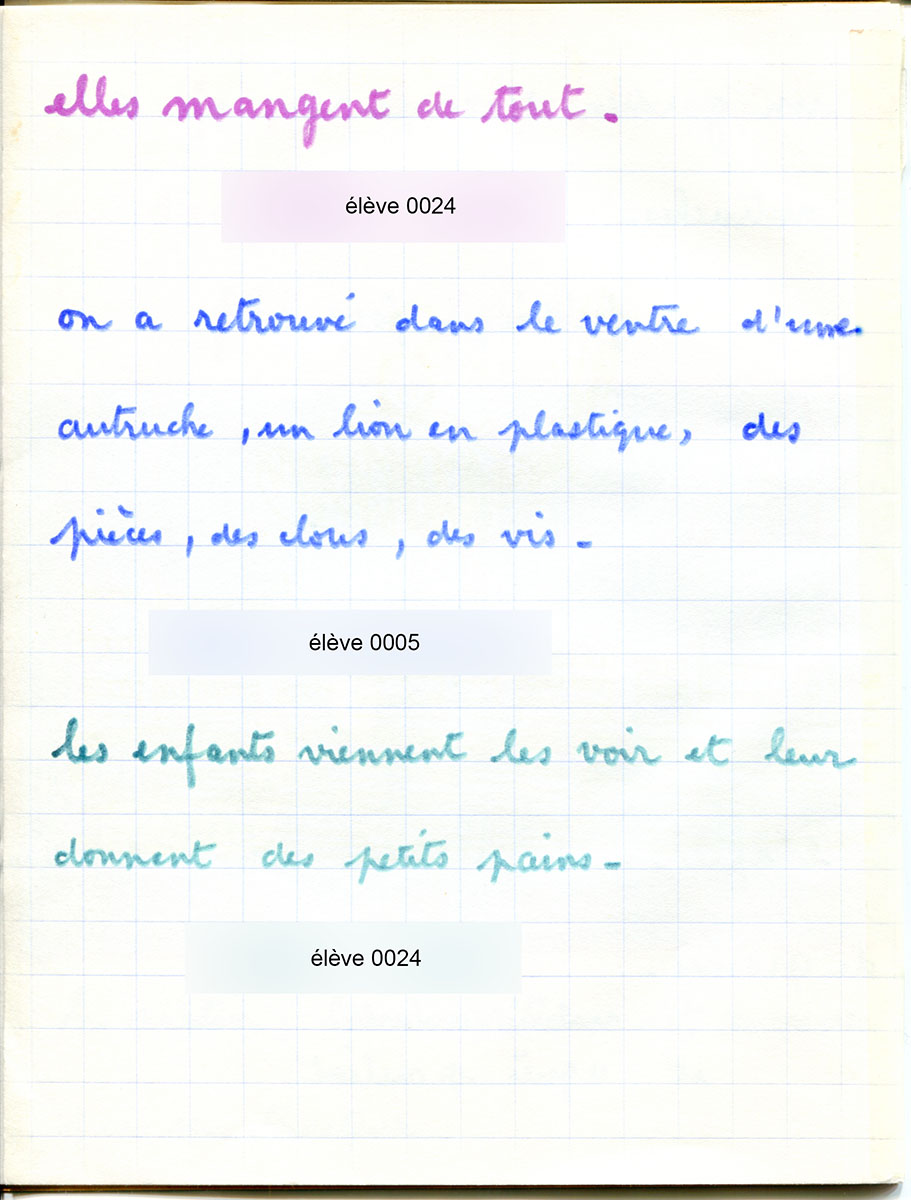 elles mangent de tout.
élève 0024
on a retrouvé dans le ventre d'une
autruche, un lion en plastique, des
pièces, des clous, des vis.
élève 0005
les enfants viennent les voir et leur
donnent des petits pains.
élève 0024